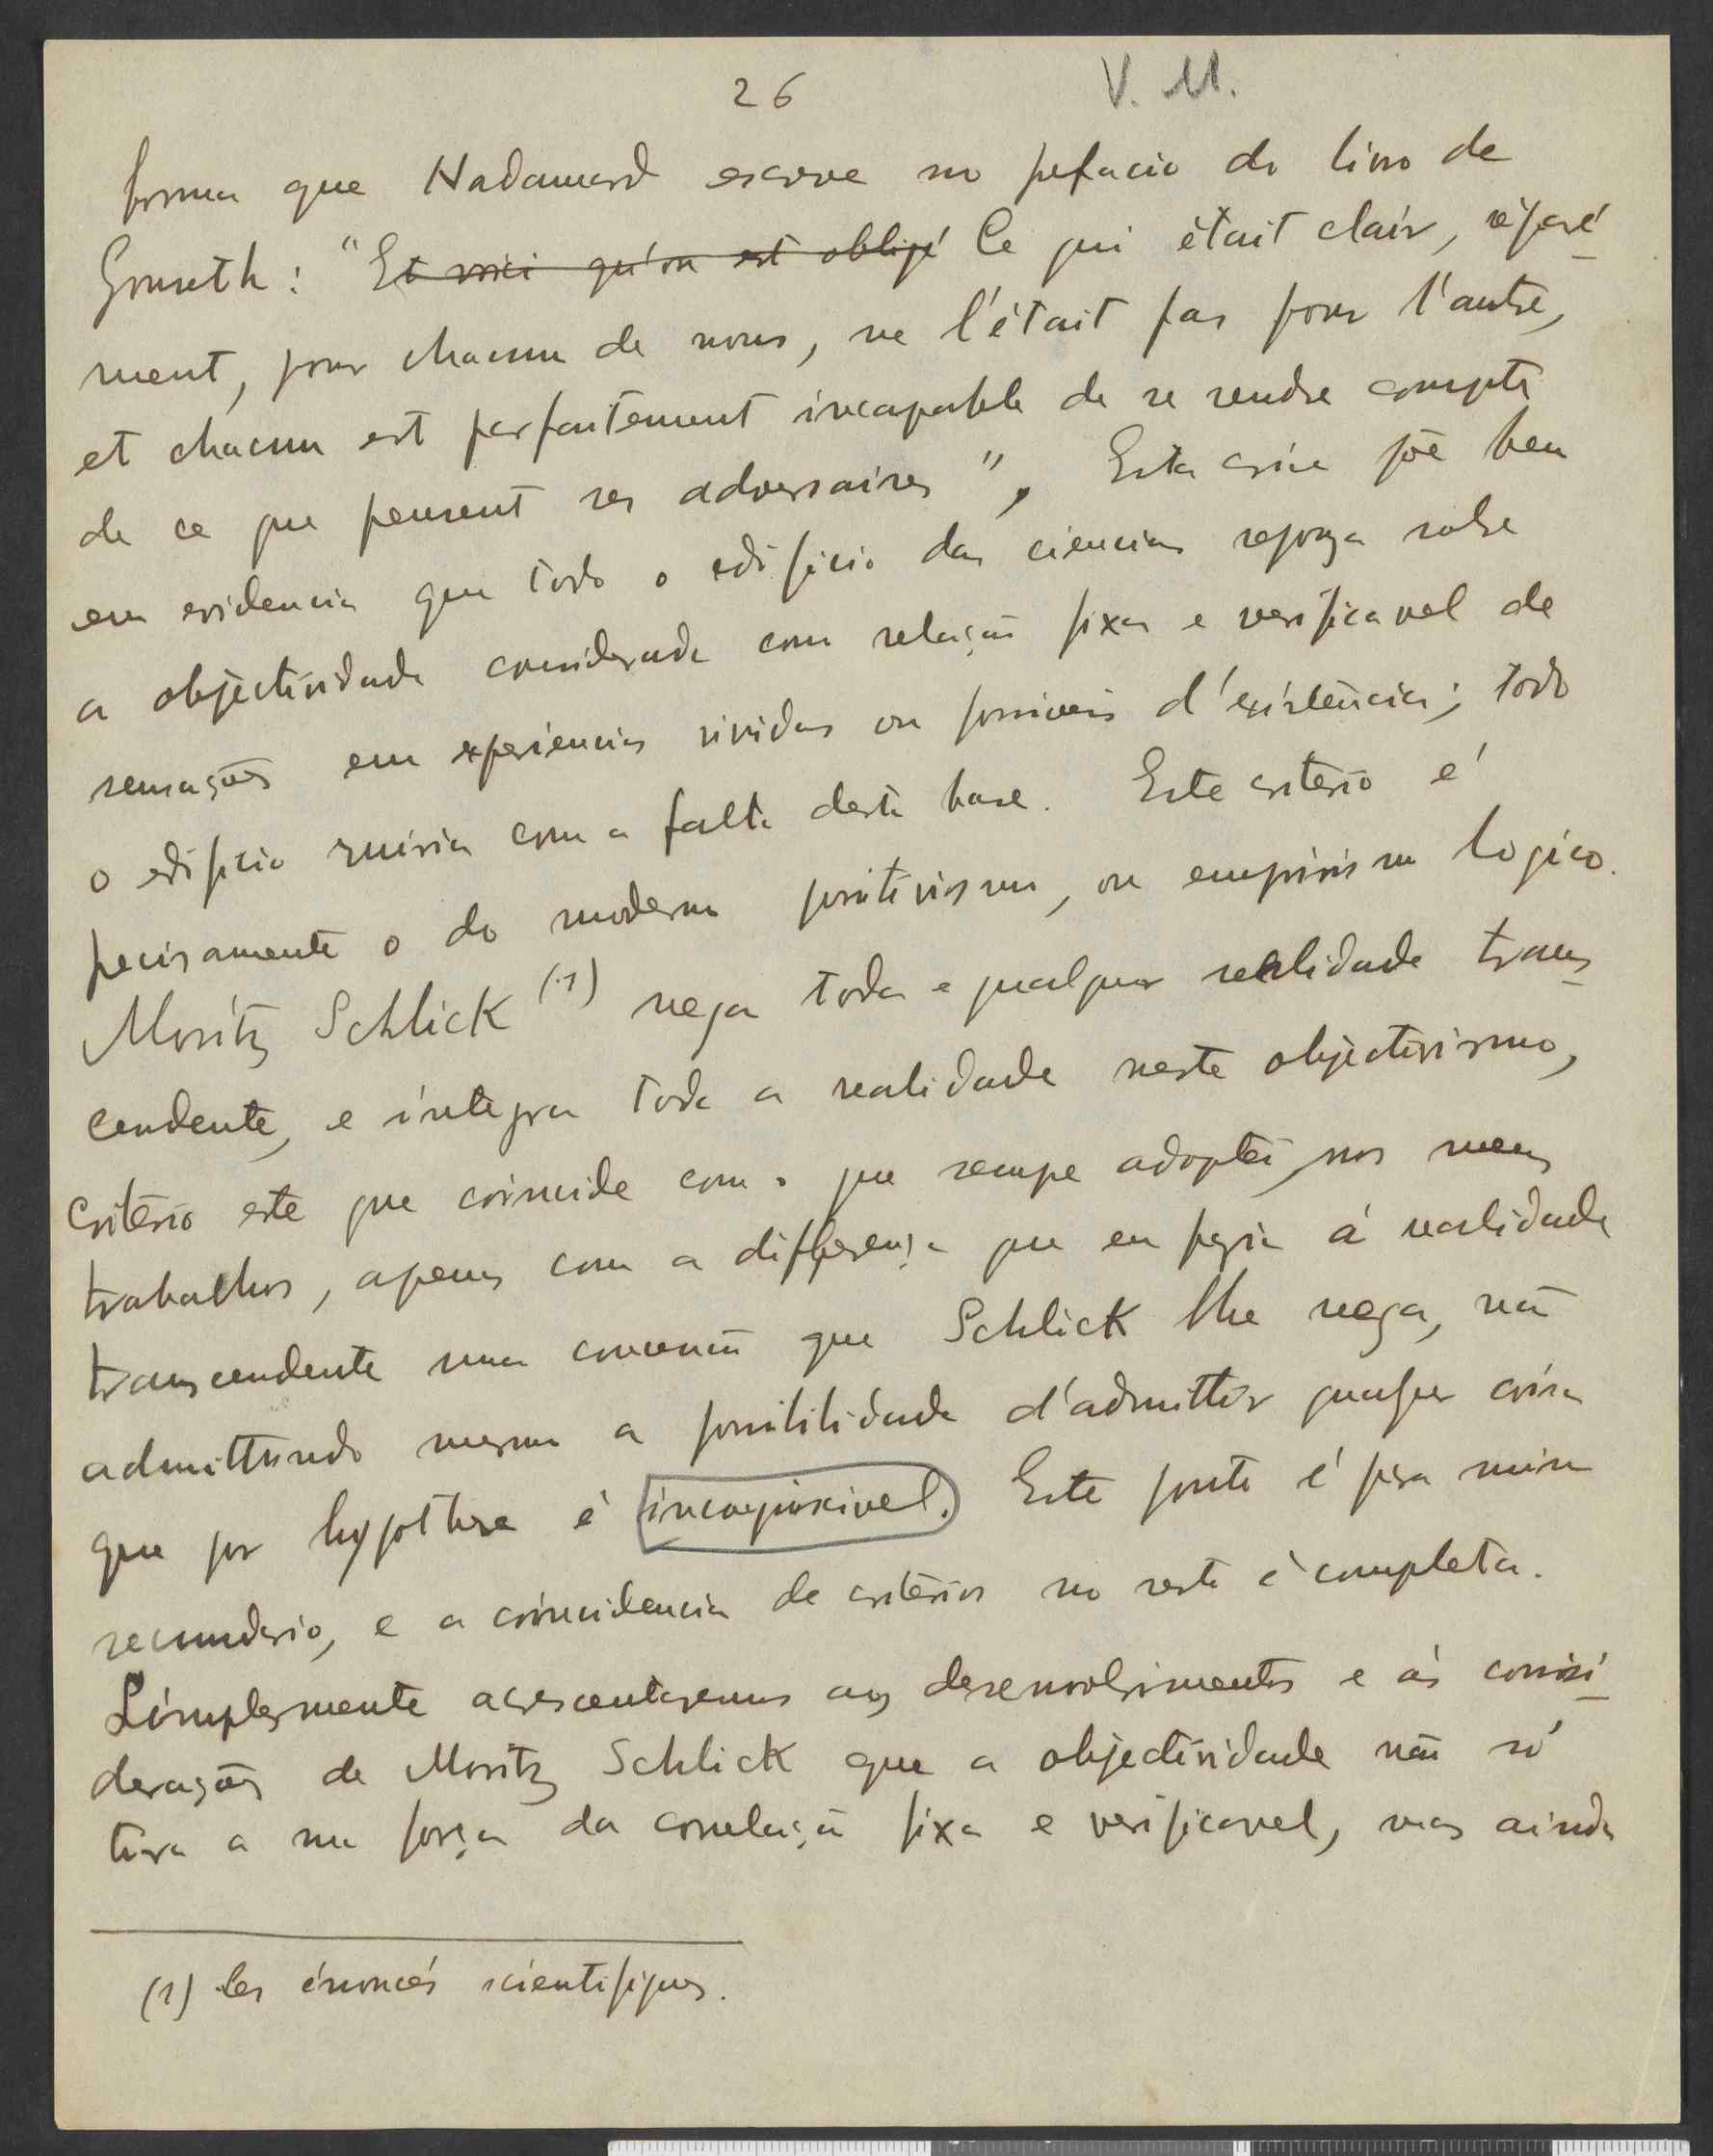 26 V. M.
forma que Hadamard escreve no prefacio do livro de
Gonseth: "Et voici qu'on est obligé Ce qui était clair, séparé-
ment, pour chacun de nous, ne l'était pas pour l'autre,
et chacun est parfaitement incapable de se rendre compte
de ce que pensent ses adversaires". Esta crise põe bem
em evidencia que todo o edificio das ciencias repousa sobre
a objectividade considerada como relação fixa e verificavel de
sensações em experiencias vividas ou possiveis d'existência; todo
o edificio ruiria com a falta desta base. Este criterio é
precisamente o do moderno positivismo, ou empirismo logico.
Moritz Schlick (1) nega toda e qualquer realidade trans-
cendente, e integra toda a realidade neste objectivismo,
critério este que coincide com o que sempre adoptei nos meus
trabalhos, apenas com a differença que eu fazia á realidade
transcendente uma concessão que Schlick lhe nega, não
admittindo mesmo a possibilidade d'admittir qualquer coisa
que por hypothese é Este ponto é para mim
secundario, e a coincidencia de critérios no resto é completa.
Simplesmente acrescentaremos aos desenvolvimentos e ás consi-
derações de Moritz Schlick que a objectividade não só
tira a sua força da correlação fixa e verificavel, mas ainda
(1) Les énoncés scientifiques.